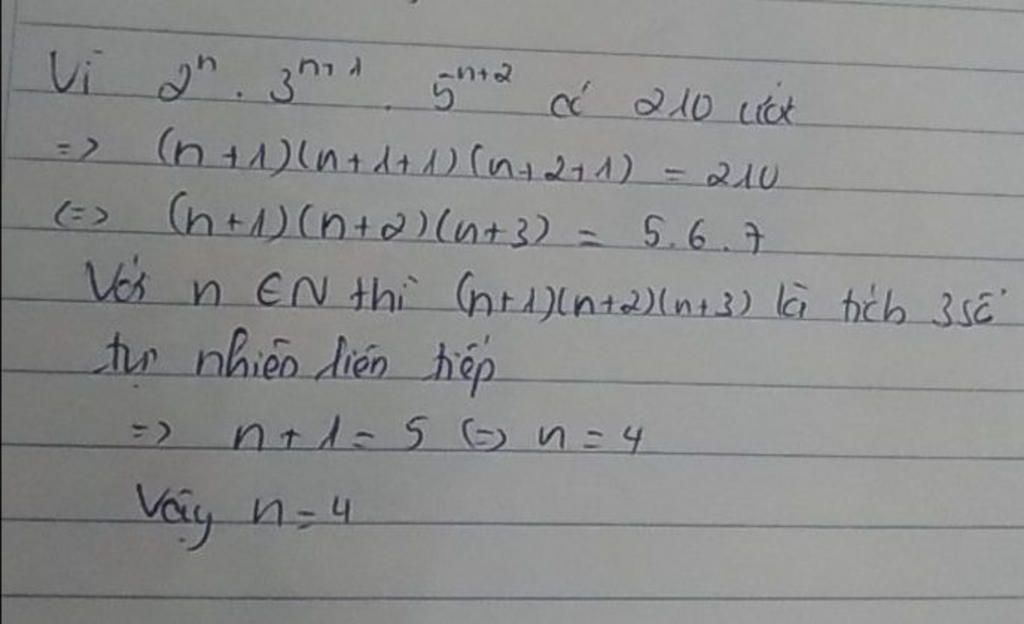 Vì 2^n . 3^{n+1} . 5^{n+2} có 210 ước
=> (n+1)(n+1+1)(n+2+1) = 210
<=> (n+1)(n+2)(n+3) = 5.6.7
Với n ∈ N thì (n+1)(n+2)(n+3) là tích 3 số
tự nhiên liên tiếp
=> n+1=5 <=> n=4
Vậy n=4